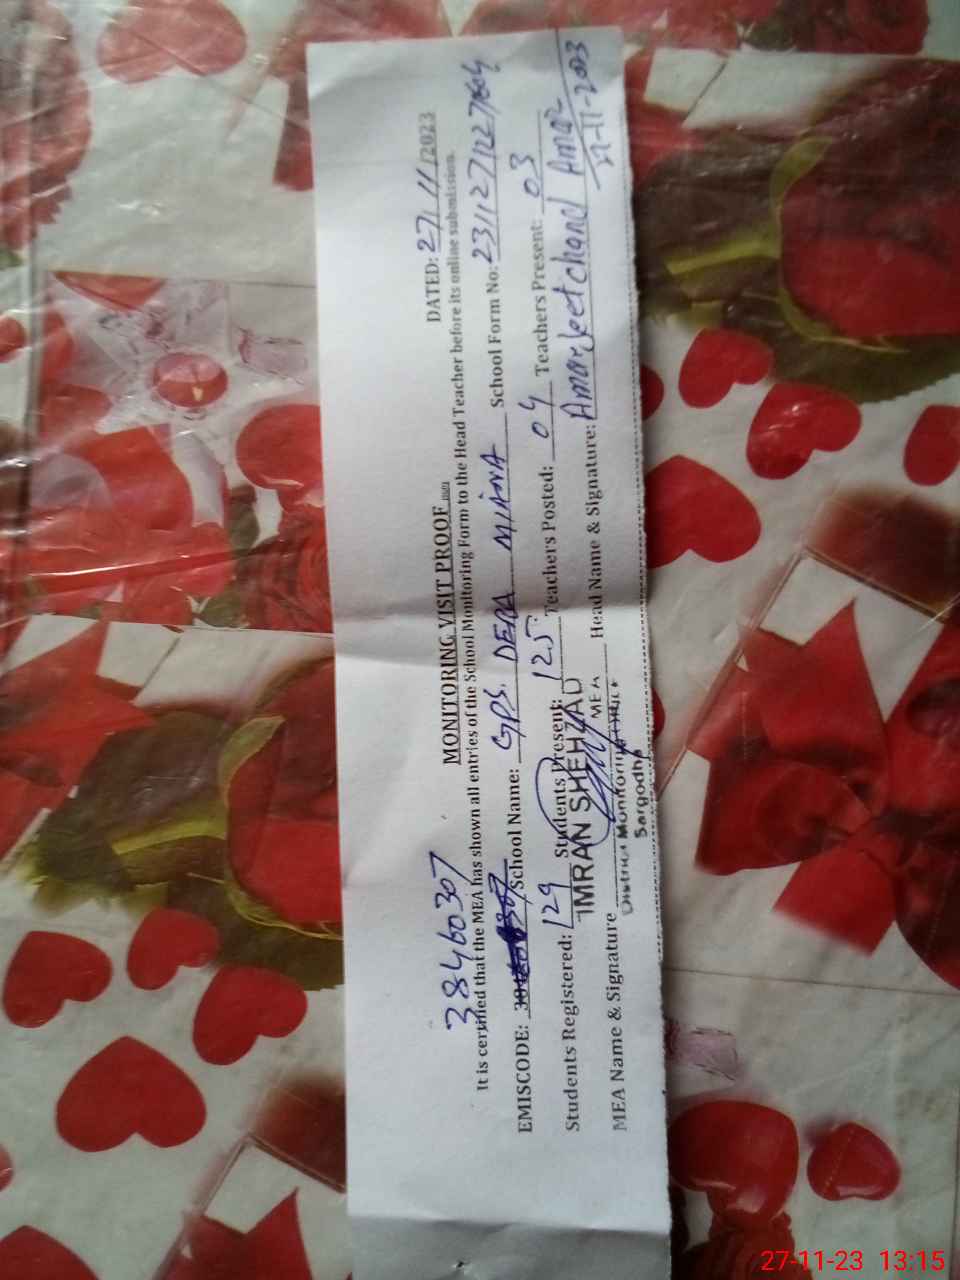 DATED: 27/11/2023
MONITORING VISIT PROOF
38460307
It is certified that the MEA has shown all entries of the School Monitoring Form to the Head Teacher before its online submission.
EMISCODE: School Name: GPS. DERA MIANA School Form No: 2311271227
Students Registered: 129 Students Present: 125 Teachers Posted: 04 Teachers Present: 03
IMRAN SHEHZAD
MEA
MEA Name & Signature Head Name & Signature: Amarjeetchand Amar
District Monitoring
Sargodha
27-11-23 13:15